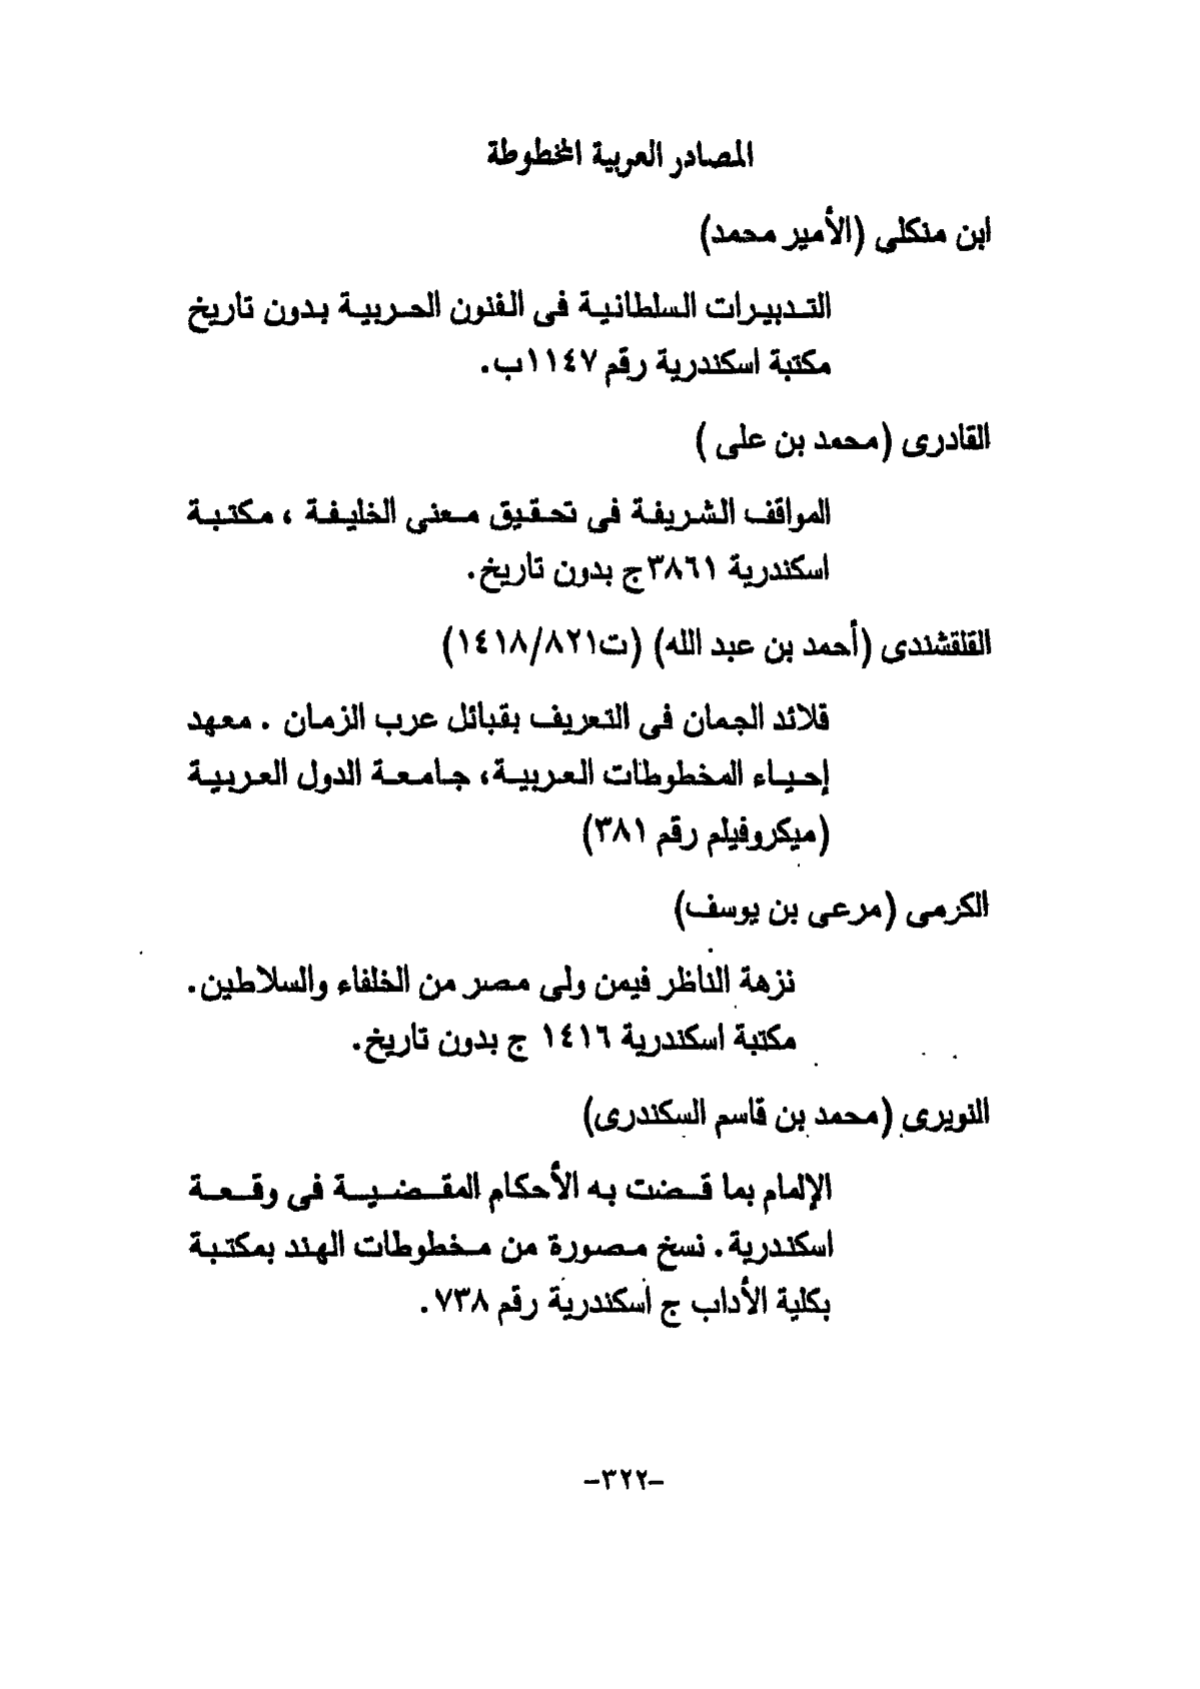 المصادر العربية المخطوطة
ابن منكلى (الأمير محمد)
التدبيرات السلطانية فى الفنون الحربية بدون تاريخ
مكتبة اسكندرية رقم ١١٤٧ب.
القادرى (محمد بن على )
المواقف الشريفة فى تحقيق معنى الخليفة ، مكتبة
اسكندرية ٣٨٦١ج بدون تاريخ.
القلقشندى (أحمد بن عبد الله) (ت١٤١٨/٨٢١)
قلائد الجمان فى التعريف بقبائل عرب الزمان . معهد
إحياء المخطوطات العربية، جامعة الدول العربية
(ميكروفيلم رقم ٣٨١)
الكرمى (مرعى بن يوسف)
نزهة الناظر فيمن ولى مصر من الخلفاء والسلاطين.
مكتبة اسكندرية ١٤١٦ ج بدون تاريخ.
النويرى (محمد بن قاسم السكندرى)
الإلمام بما قضت به الأحكام المقضية فى وقعة
اسكندرية. نسخ مصورة من مخطوطات الهند بمكتبة
بكلية الأداب ج اسكندرية رقم ٧٣٨.
-٣٢٢-